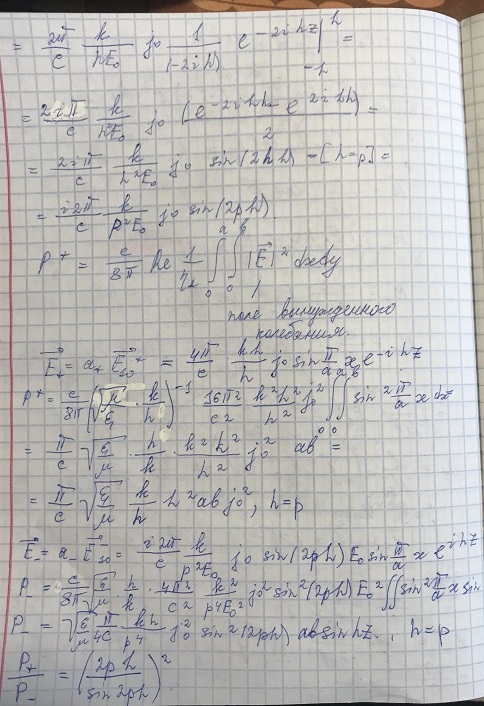 = 2π/c k/hE₀ j₀ 1/(-2ih) e^{-2ihz} |_{-h}^{h} =
= 2iπ/c k/h²E₀ j₀ (e^{-2ihh} - e^{2ihh})/2 =
= 2iπ/c k/h²E₀ j₀ sin(2hh) - [h=p] =
= i2π/c k/p²E₀ j₀ sin(2ph)
P⁺ = c/8π Re 1/η* ∫₀^a ∫₀^b |E⃗|² dxdy
поле вынужденного
колебания.
E⃗₊ = a₊ E⃗₁₀⁺ = 4π/c kh/h j₀ sin π/a x e^{-ihz}
P⁺ = c/8π (√μ/ε · k/h)⁻¹ 16π²/c² k²h²/h² j₀² ∫₀^a ∫₀^b sin² π/a x dx
= π/c √ε/μ · h/k · k²h²/h² j₀² ab =
= π/c √ε/μ k/h h² ab j₀², h=p
E⃗₋ = a₋ E⃗₁₀ = i2π/c k/p²E₀ j₀ sin(2ph) E₀ sin π/a x e^{ihz}
P₋ = c/8π √ε/μ h/k · 4π²/c² k²/p⁴E₀² j₀² sin²(2ph) E₀² ∫∫ sin² π/a x sin
P₋ = √ε/μ π/4c kh/p⁴ j₀² sin²(2ph) ab sin hz., h=p
P₊/P₋ = (2ph/sin2ph)².